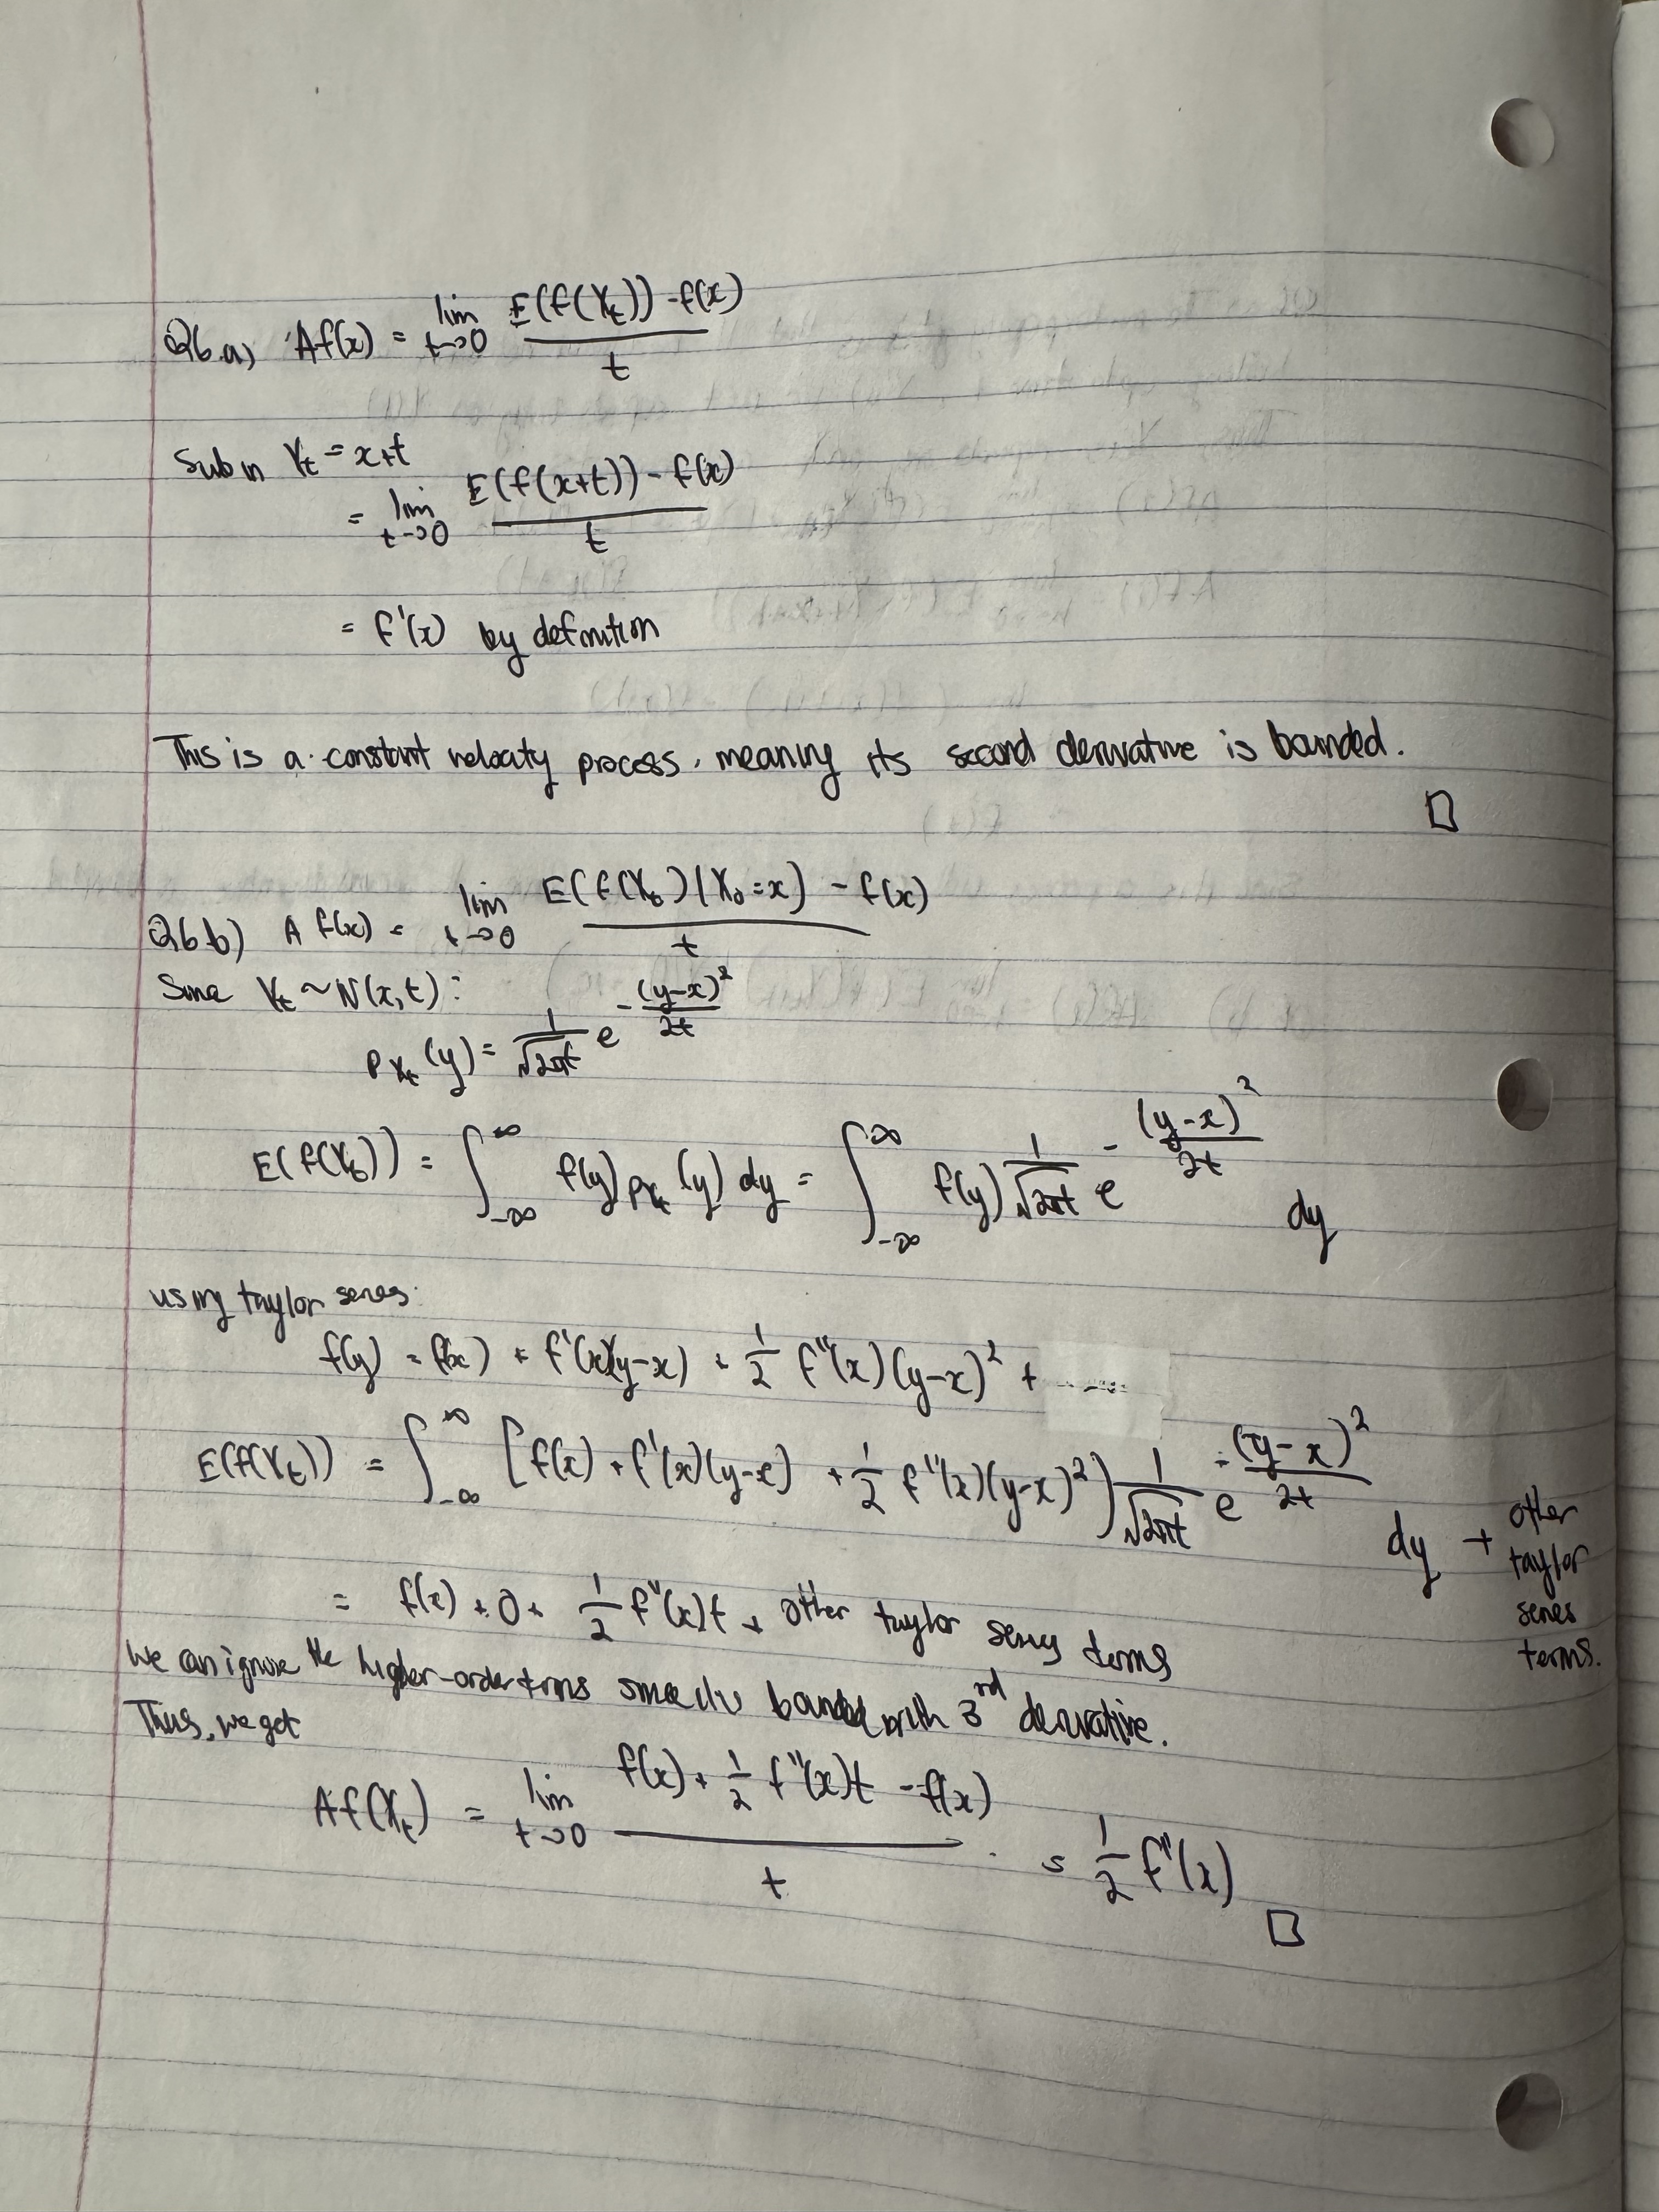 Q6.a) Af(x) = lim t→0 (E(f(X_t)) - f(x)) / t
Sub in X_t = x+t
= lim t→0 (E(f(x+t)) - f(x)) / t
= f'(x) by definition
This is a constant velocity process, meaning its second derivative is bounded.
□
Q6 b) A f(x) = lim t→0 (E(f(X_t) | X_0 = x) - f(x)) / t
Since X_t ~ N(x, t):
p_{X_t}(y) = 1/√(2πt) e^{-(y-x)²/2t}
E(f(X_t)) = ∫_{-∞}^{∞} f(y) p_{X_t}(y) dy = ∫_{-∞}^{∞} f(y) 1/√(2πt) e^{-(y-x)²/2t} dy
using taylor series:
f(y) = f(x) + f'(x)(y-x) + 1/2 f''(x)(y-x)² + ......
E(f(X_t)) = ∫_{-∞}^{∞} [f(x) + f'(x)(y-x) + 1/2 f''(x)(y-x)²) 1/√(2πt) e^{-(y-x)²/2t} dy + other taylor series terms.
= f(x) + 0 + 1/2 f''(x)t + other taylor series terms
We can ignore the higher-order terms since bounded with 3rd derivative.
Thus, we get
Af(X_t) = lim t→0 (f(x) + 1/2 f''(x)t - f(x)) / t = 1/2 f''(x)
□